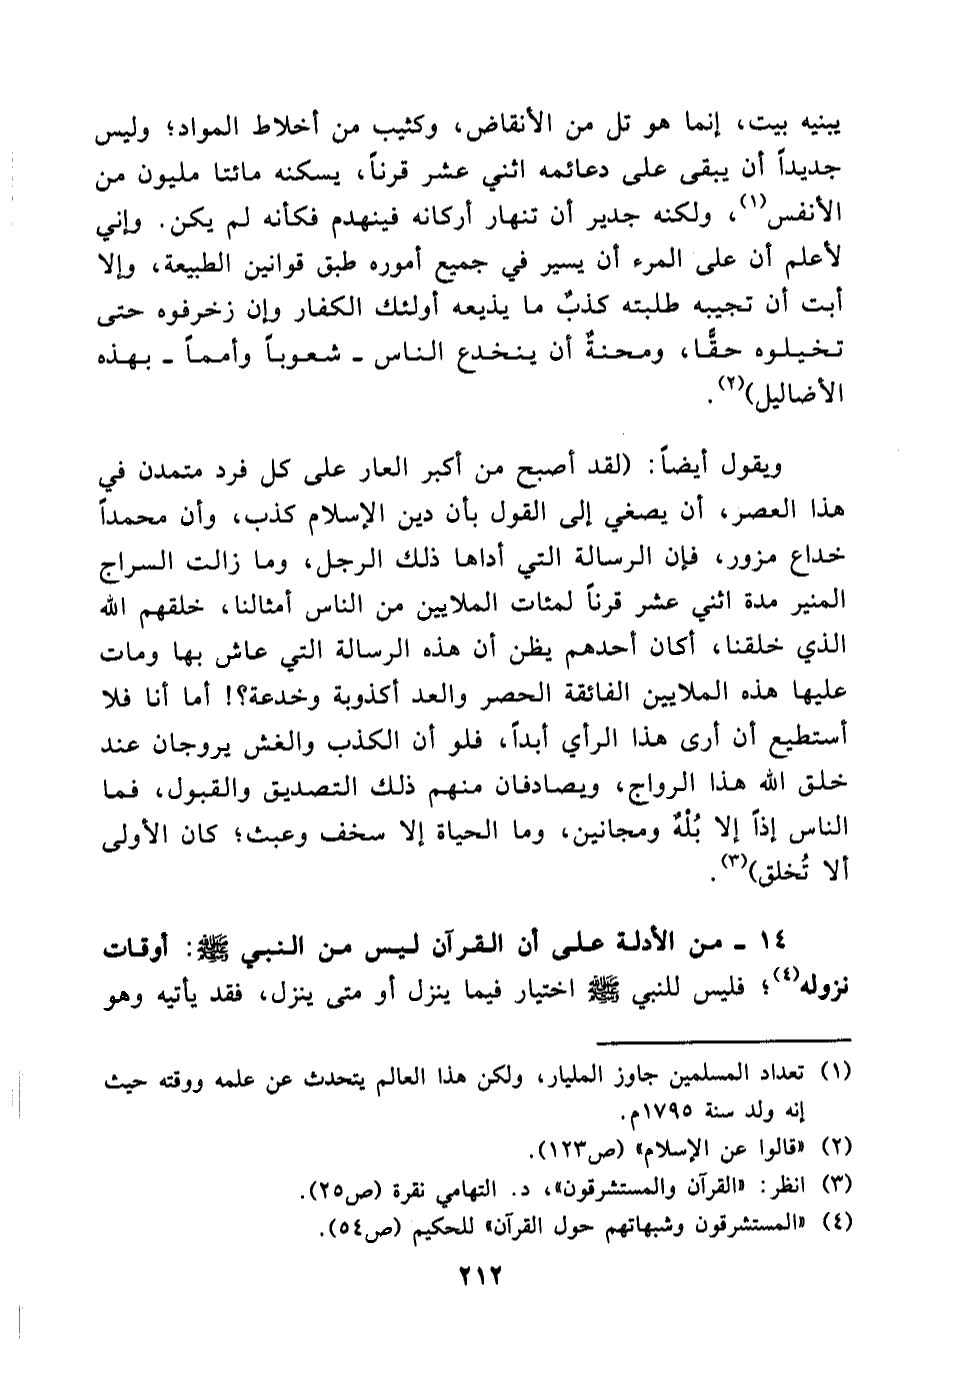 يبنيه بيت، إنما هو تل من الأنقاض، وكثيب من أخلاط المواد؛ وليس
جديداً أن يبقى على دعائمه اثني عشر قرناً، يسكنه مائتا مليون من
الأنفس(١)، ولكنه جدير أن تنهار أركانه فينهدم فكأنه لم يكن. وإني
لأعلم أن على المرء أن يسير في جميع أموره طبق قوانين الطبيعة، وإلا
أبت أن تجيبه طلبته كذبٌ ما يذيعه أولئك الكفار وإن زخرفوه حتى
تخيلوه حقًّا، ومحنةٌ أن ينخدع الناس ـ شعوباً وأمماً ـ بهذه
الأضاليل)(٢).
ويقول أيضاً: (لقد أصبح من أكبر العار على كل فرد متمدن في
هذا العصر، أن يصغي إلى القول بأن دين الإسلام كذب، وأن محمداً
خداع مزور، فإن الرسالة التي أداها ذلك الرجل، وما زالت السراج
المنير مدة اثني عشر قرناً لمئات الملايين من الناس أمثالنا، خلقهم الله
الذي خلقنا، أكان أحدهم يظن أن هذه الرسالة التي عاش بها ومات
عليها هذه الملايين الفائقة الحصر والعد أكذوبة وخدعة؟! أما أنا فلا
أستطيع أن أرى هذا الرأي أبداً، فلو أن الكذب والغش يروجان عند
خلق الله هذا الرواج، ويصادفان منهم ذلك التصديق والقبول، فما
الناس إذاً إلا بُلْهٌ ومجانين، وما الحياة إلا سخف وعبث؛ كان الأولى
ألا تُخلق)(٣).
١٤ ـ من الأدلة على أن القرآن ليس من النبي ﷺ: أوقات
نزوله(٤)؛ فليس للنبي ﷺ اختيار فيما ينزل أو متى ينزل، فقد يأتيه وهو
(١) تعداد المسلمين جاوز المليار، ولكن هذا العالم يتحدث عن علمه ووقته حيث
إنه ولد سنة ١٧٩٥م.
(٢) «قالوا عن الإسلام» (ص١٢٣).
(٣) انظر: «القرآن والمستشرقون»، د. التهامي نقرة (ص٢٥).
(٤) «المستشرقون وشبهاتهم حول القرآن» للحكيم (ص٥٤).
٢١٢